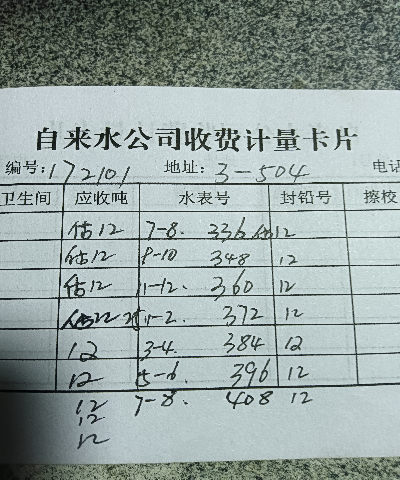 自来水公司收费计量卡片
编号:172101 地址: 3-504 电话
卫生间 应收吨 水表号 封铅号 擦校
估12 7-8. 336 估12
估12 9-10 348 12
估12 11-12. 360 12
1-2. 372 12
12 3-4. 384 12
12 5-6. 396 12
12 7-8. 408 12
12
12